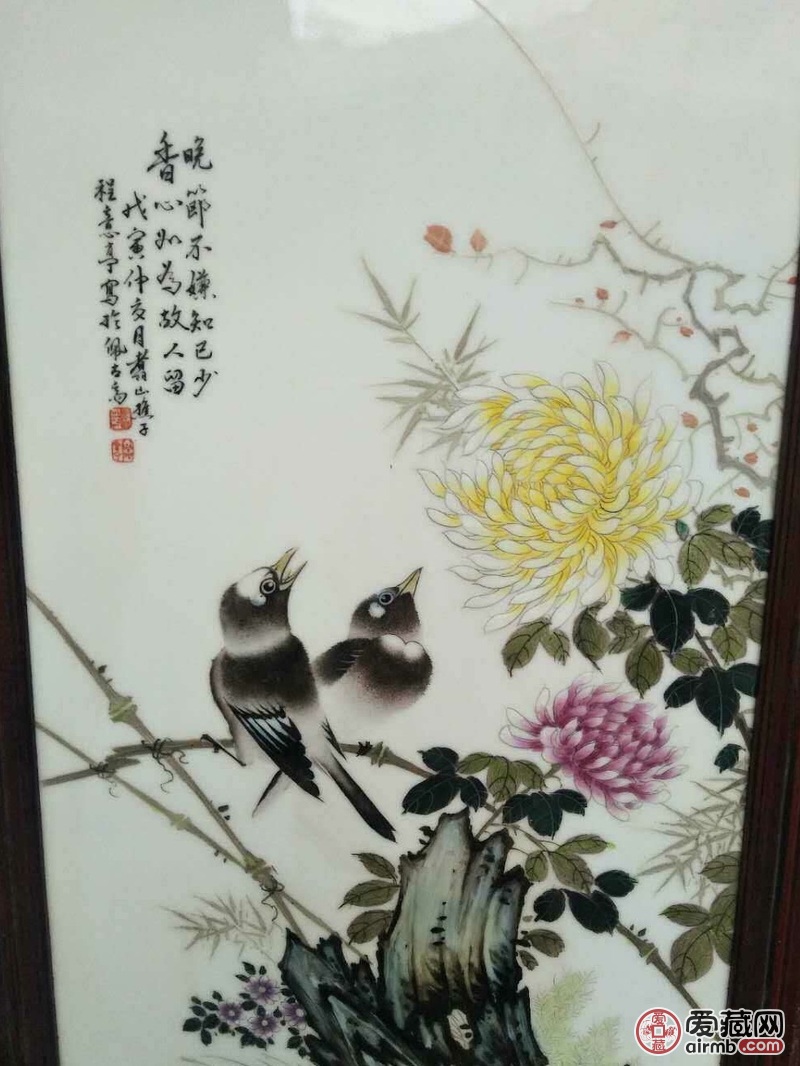 晚節不嫌知己少
香心如為故人留
戊寅仲夏月翥山樵子
程意亭寫於佩古齋
爱藏
爱藏网
airmb.com